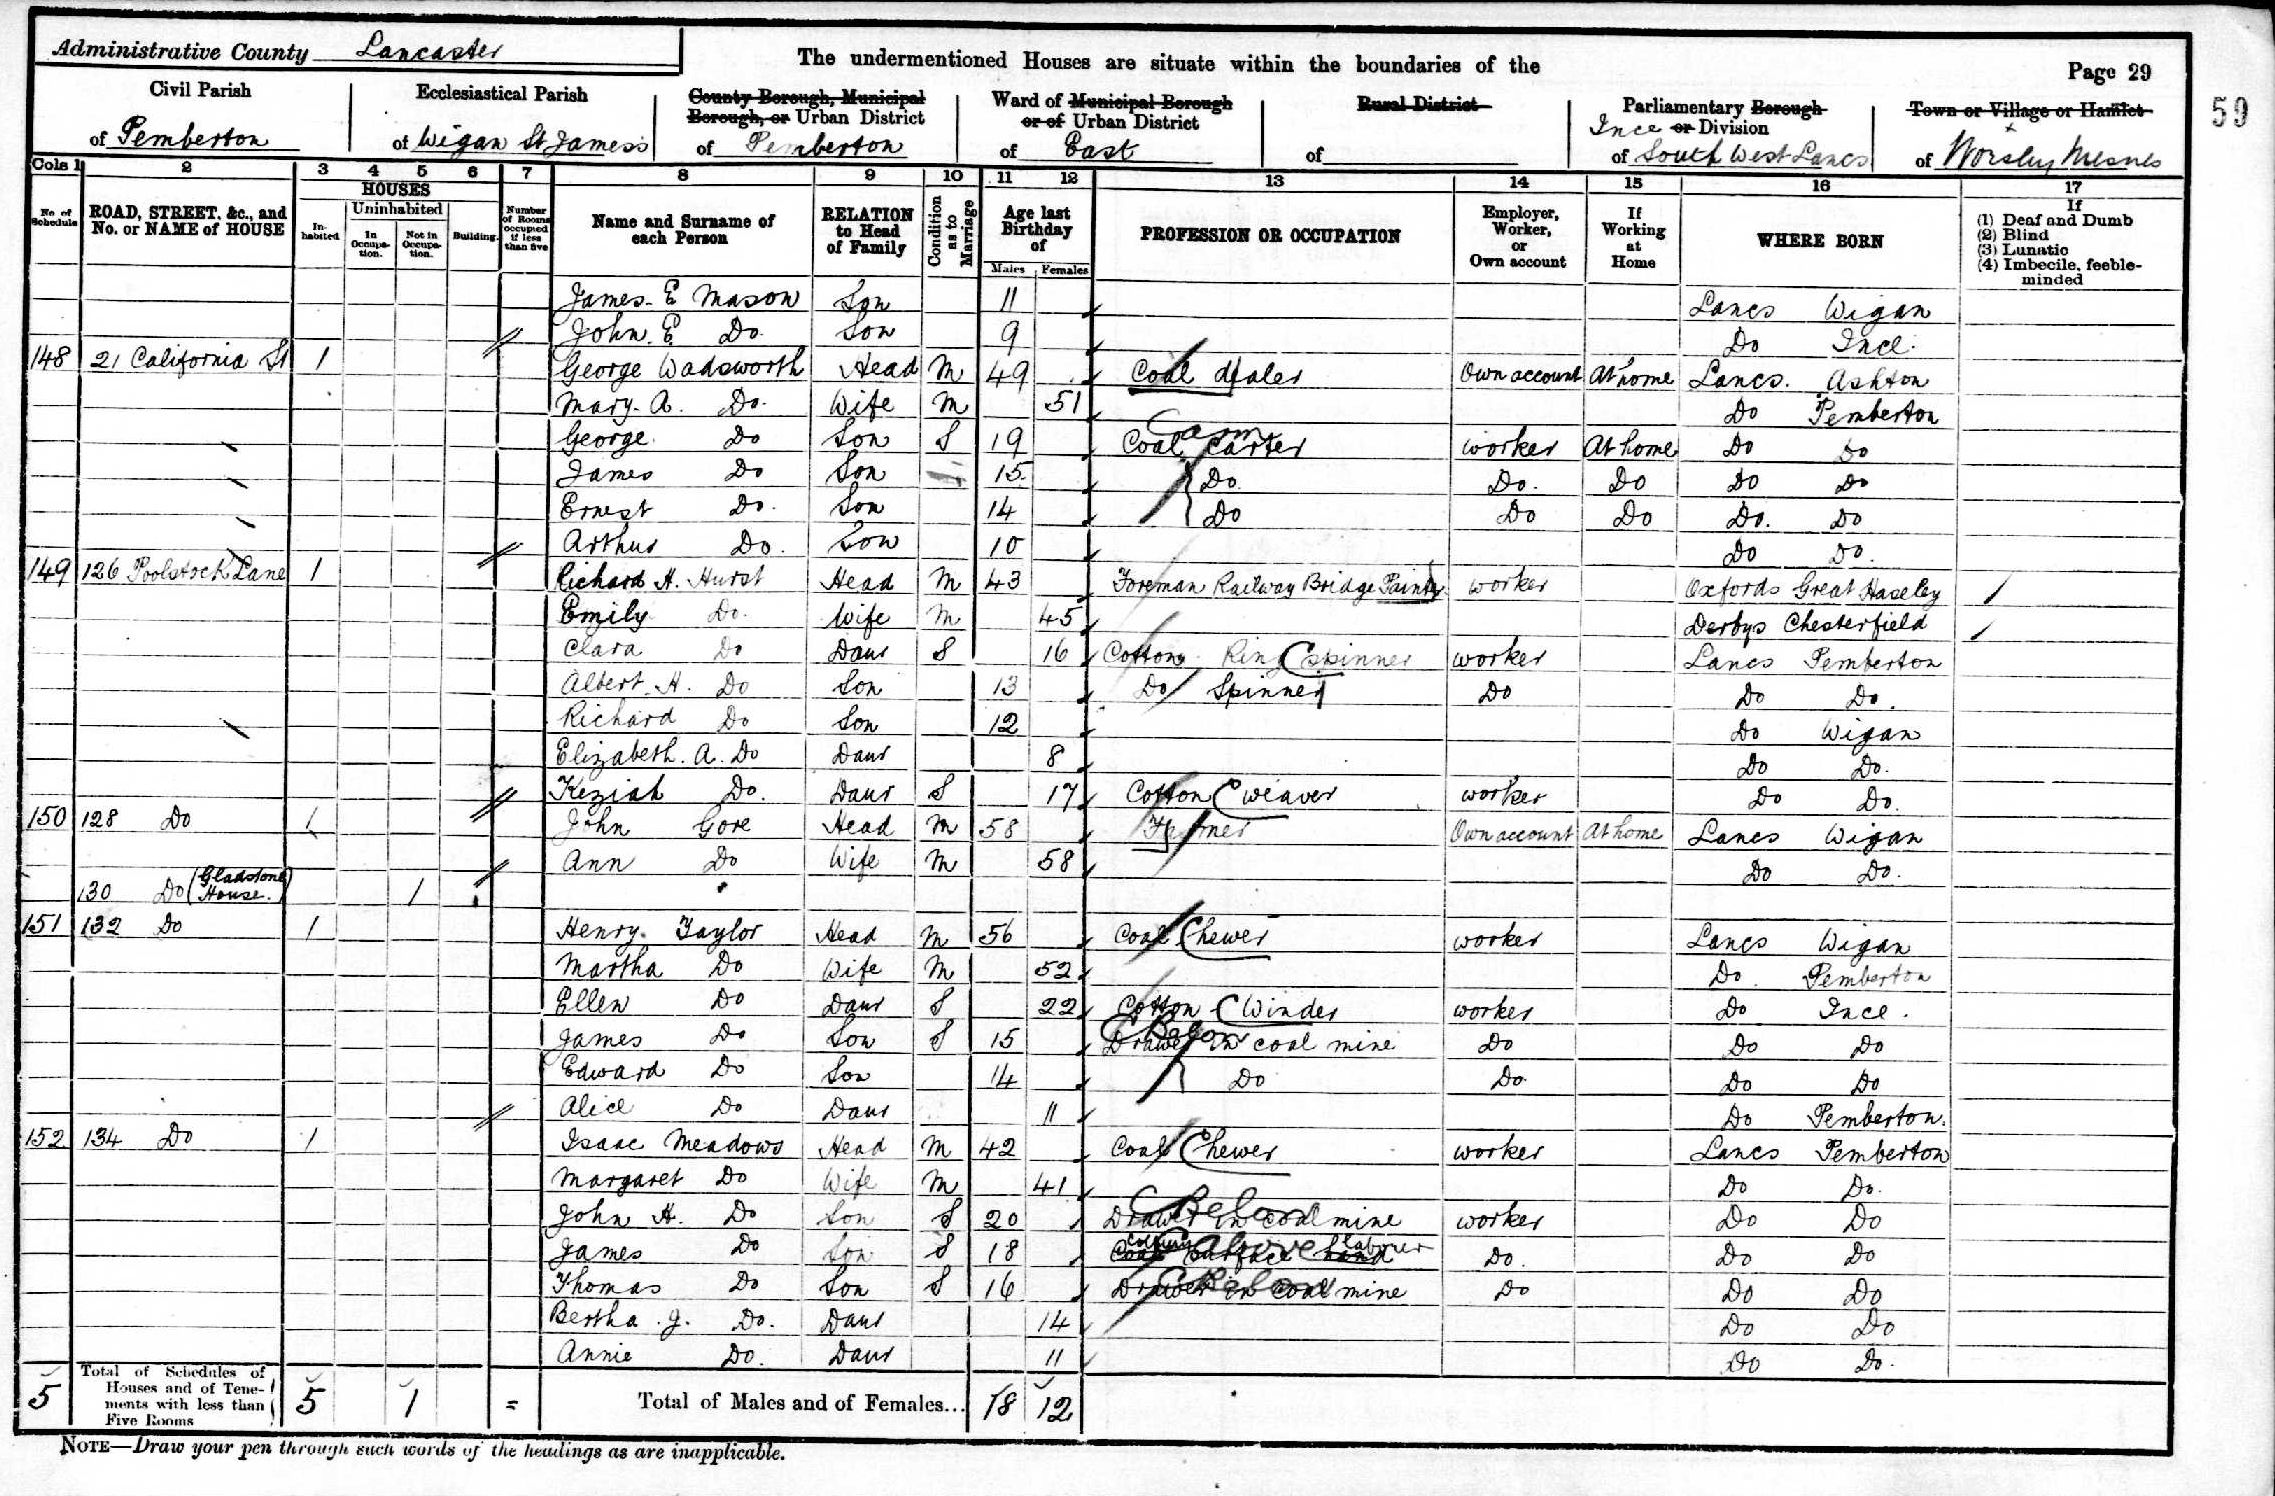 Administrative County Lancaster
The undermentioned Houses are situate within the boundaries of the
Page 29
59
Civil Parish
of Pemberton
Ecclesiastical Parish
of Wigan St James's
County Borough, Municipal
Borough, or Urban District
of Pemberton
Ward of Municipal Borough
or of Urban District
of East
Rural District
of
Parliamentary Borough
Ince or Division
of South West Lancs
Town or Village or Hamlet
of Worsley Mesnes
Cols 1 2 3 4 5 6 7 8 9 10 11 12 13 14 15 16 17
No. of Schedule
ROAD, STREET, &c., and No. or NAME of HOUSE
HOUSES
Inhabited
Uninhabited
In Occupation.
Not in Occupation.
Building.
Number of Rooms occupied if less than five
Name and Surname of each Person
RELATION to Head of Family
Condition as to Marriage
Age last Birthday of
Males Females
PROFESSION OR OCCUPATION
Employer, Worker, or Own account
If Working at Home
WHERE BORN
If
(1) Deaf and Dumb
(2) Blind
(3) Lunatic
(4) Imbecile, feeble-minded
James E Mason Son 11 Lancs Wigan
John E Do Son 9 Do Ince
148 21 California St 1 George Wadsworth Head M 49 Coal dealer Own account At home Lancs. Ashton
Mary. A. Do Wife M 51 Do Pemberton
George Do Son S 19 Coal Carter worker At home Do Do
James Do Son 15 Do Do Do Do Do
Ernest Do Son 14 Do Do Do Do Do
Arthur Do Son 10 Do Do
149 126 Poolstock Lane 1 Richard H. Hurst Head M 43 Foreman Railway Bridge Painter worker Oxfords Great Haseley
Emily Do Wife M 45 Derbys Chesterfield
Clara Do Daur S 16 Cotton Ring spinner worker Lancs Pemberton
Albert H. Do Son 13 Do Spinner Do Do Do
Richard Do Son 12 Do Wigan
Elizabeth. A. Do Daur 8 Do Do
Keziah Do Daur S 17 Cotton weaver worker Do Do
150 128 Do 1 John Gore Head M 58 Farmer Own account At home Lancs Wigan
Ann Do Wife M 58 Do Do
130 Do (Gladstone House.) 1
151 132 Do 1 Henry Taylor Head M 56 Coal hewer worker Lancs Wigan
Martha Do Wife M 52 Do Pemberton
Ellen Do Daur S 22 Cotton Winder worker Do Ince
James Do Son S 15 Drawer in coal mine Do Do Do
Edward Do Son 14 Do Do Do Do
Alice Do Daur 11 Do Pemberton
152 134 Do 1 Isaac Meadows Head M 42 Coal hewer worker Lancs Pemberton
Margaret Do Wife M 41 Do Do
John H. Do Son S 20 Drawer in coal mine worker Do Do
James Do Son S 18 Coal surface hand labourer Do Do Do
Thomas Do Son S 16 Drawer in coal mine Do Do Do
Bertha J. Do Daur 14 Do Do
Annie Do Daur 11 Do Do
5 Total of Schedules of Houses and of Tenements with less than Five Rooms 5 1 = Total of Males and of Females... 18 12
NOTE—Draw your pen through such words of the headings as are inapplicable.